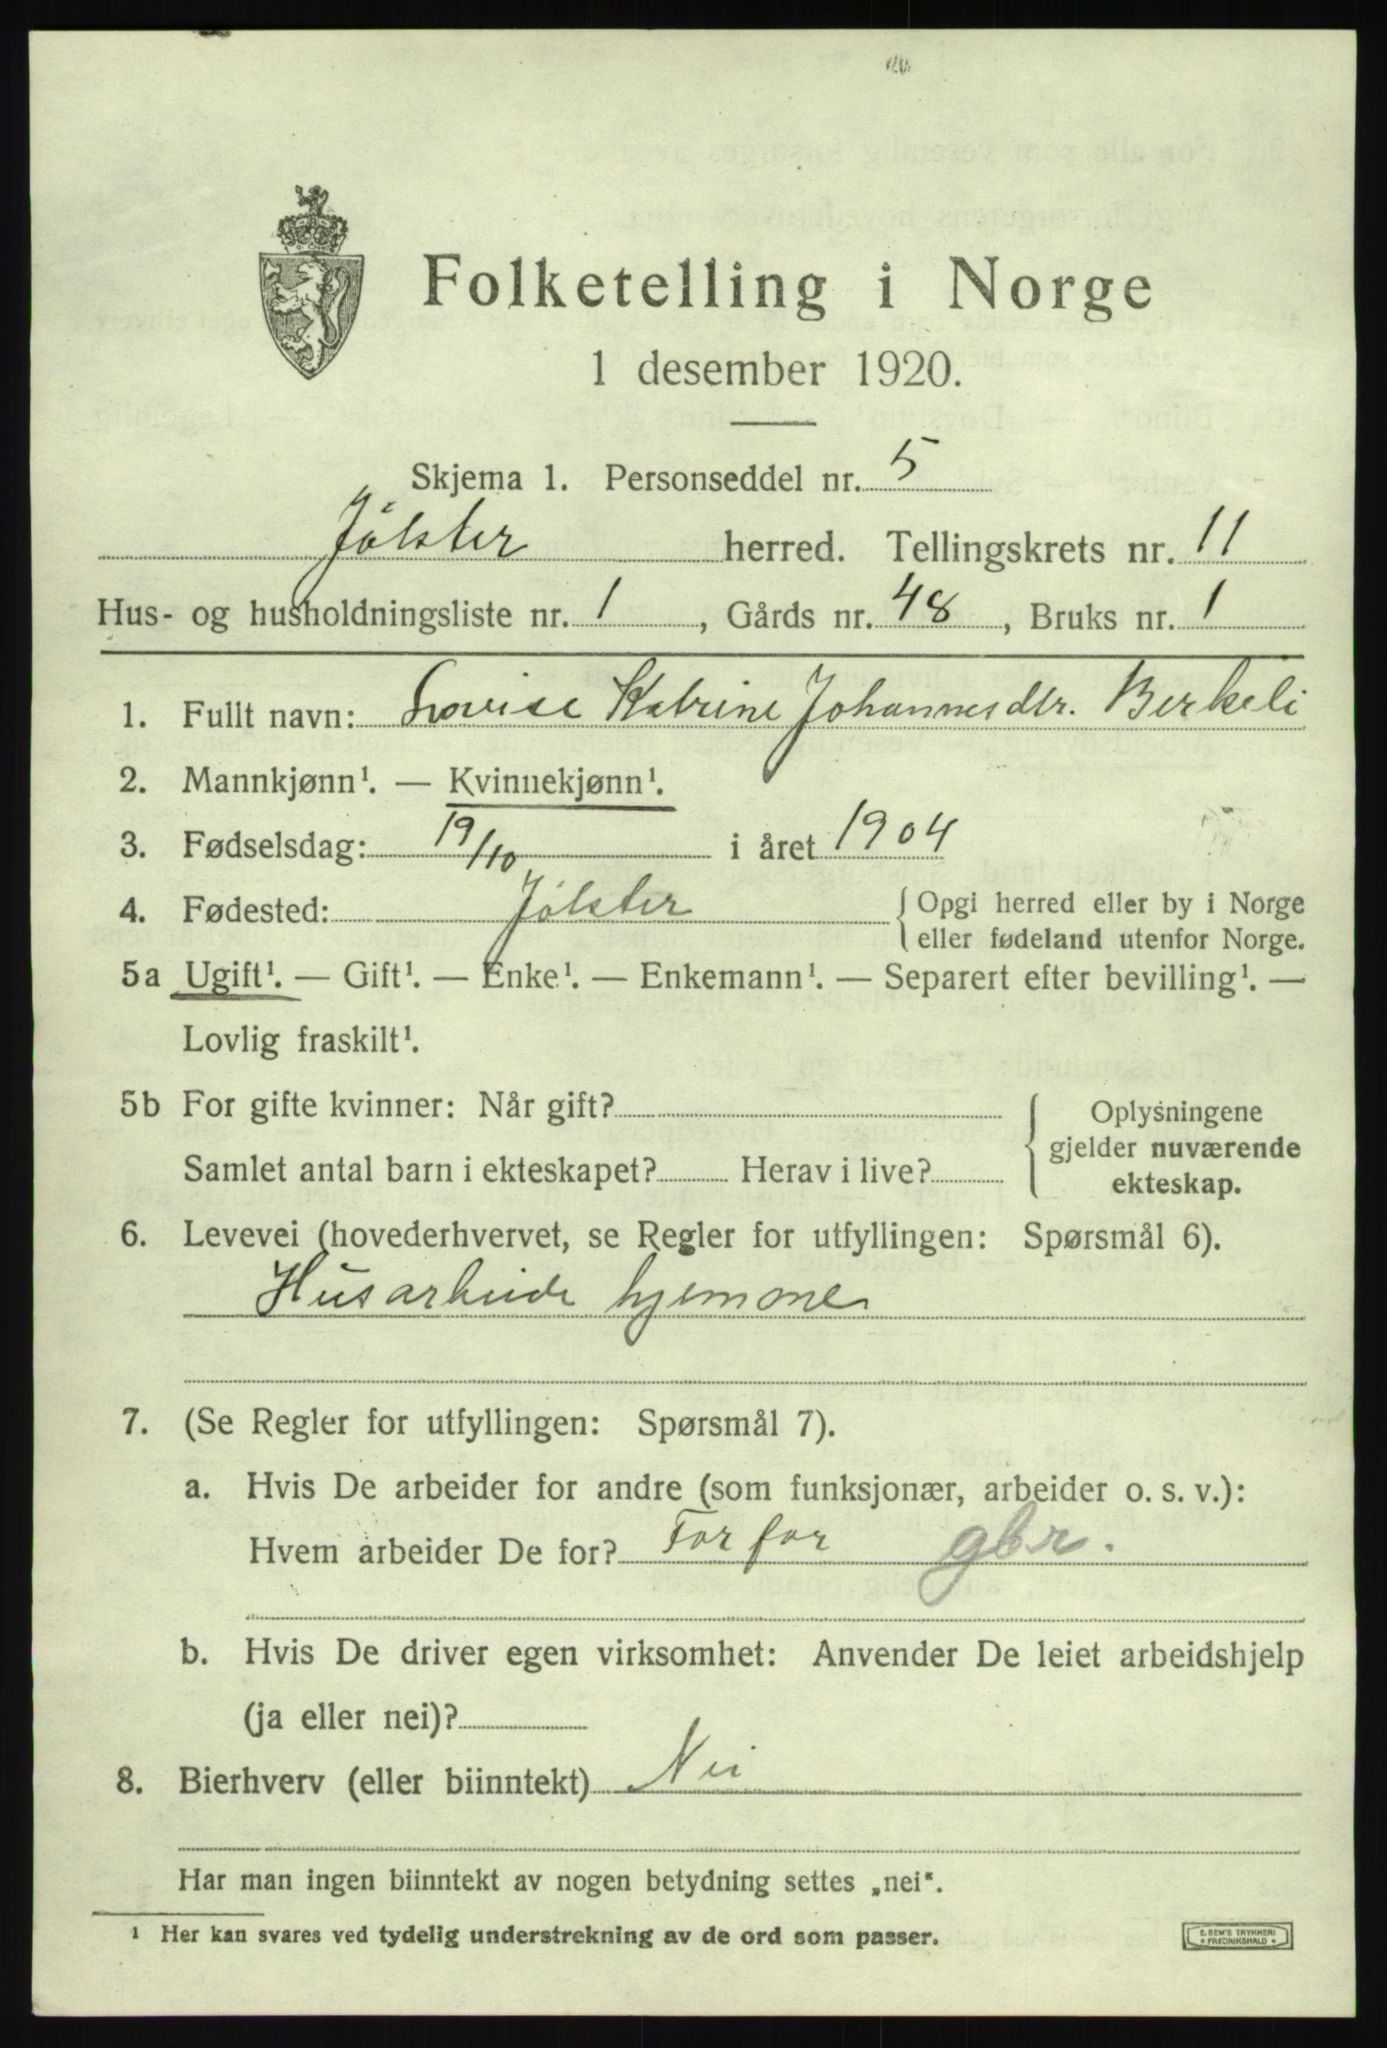 Folketelling i Norge
1 desember 1920.
Skjema 1. Personseddel nr. 5
Jölster herred. Tellingskrets nr. 11
Hus- og husholdningsliste nr. 1, Gårds nr. 48, Bruks nr. 1
1. Fullt navn: Lovise Katrine Johannesdtr. Berkeli
2. Mannkjønn¹. — Kvinnekjønn¹.
3. Fødselsdag: 19/10 i året 1904
4. Fødested: Jölster { Opgi herred eller by i Norge
eller fødeland utenfor Norge.
5a Ugift¹. — Gift¹. — Enke¹. — Enkemann¹. — Separert efter bevilling¹. —
Lovlig fraskilt¹.
5b For gifte kvinner: Når gift? { Oplysningene
gjelder nuværende
Samlet antal barn i ekteskapet? Herav i live? ekteskap.
6. Levevei (hovederhvervet, se Regler for utfyllingen: Spørsmål 6).
Husarbeide hjemme
7. (Se Regler for utfyllingen: Spørsmål 7).
a. Hvis De arbeider for andre (som funksjonær, arbeider o. s. v.):
Hvem arbeider De for? For far gbr.
b. Hvis De driver egen virksomhet: Anvender De leiet arbeidshjelp
(ja eller nei)?
8. Bierhverv (eller biinntekt) Nei
Har man ingen biinntekt av nogen betydning settes „nei".
¹ Her kan svares ved tydelig understrekning av de ord som passer.
E. SEM'S TRYKKERI
FREDRIKSHALD